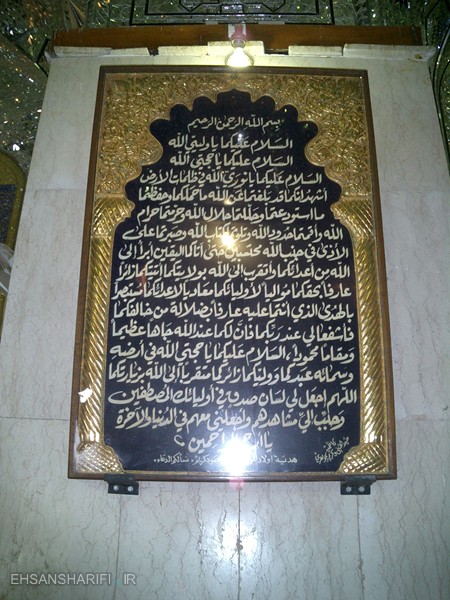 بسم الله الرحمن الرحیم
السلام علیکما یا ولیی الله
السلام علیکما یا حجتی الله
السلام علیکما یا نوری الله فی ظلمات الأرض
أشهد انکما قد بلغتما عن الله ما حملکما وحفظتما
ما استودعتما وحللتما حلال الله وحرمتما حرام
الله وأقمتما حدود الله وتلوتما کتاب الله وصبرتما علی
الأذی فی جنب الله محتسبین حتی أتاکما الیقین أبرأ إلی
الله من أعدائکما وأتقرب إلی الله بولایتکما أتیتکما زائرا
عارفا بحقکما موالیا لأولیائکما معادیا لأعدائکما مستبصرا
بالهدی الذی أنتما علیه عارفا بضلالة من خالفکما
فاشفعا لی عند ربکما فإن لکما عند الله جاها عظیما
ومقاما محمودا، السلام علیکما یا حجتی الله فی أرضه
وسمائه عبدکما وولیکما زائرکما متقربا إلی الله بزیارتکما
اللهم اجعل لی لسان صدق فی أولیائک المصطفین
وحبب إلی مشاهدهم واجعلنی معهم فی الدنیا والآخرة
یا أرحم الراحمین
هدیة اولاد
سالکم الدعاء
EHSANSHARIFI.IR